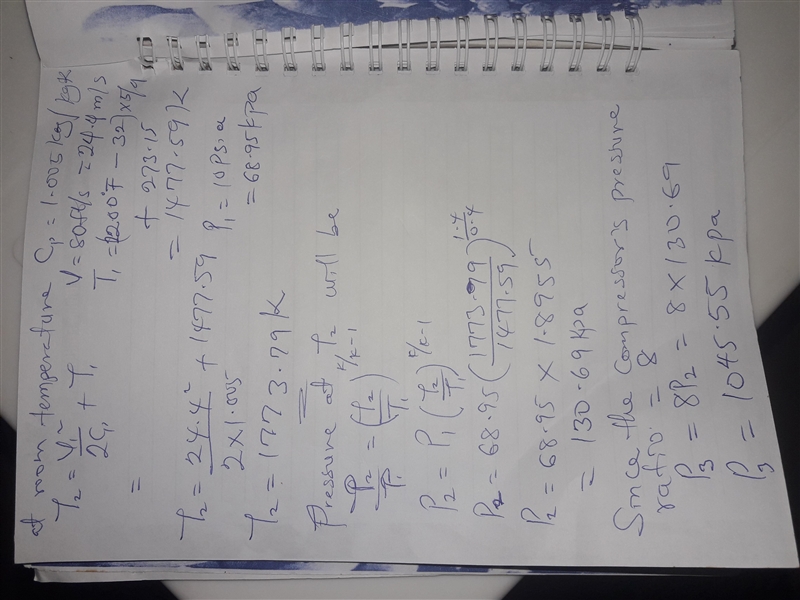 at room temperature Cp = 1.005 kg/kgK
T₂ = V₁²/2Cp + T₁ V = 80ft/s = 24.4m/s
T₁ = (1200°F - 32) × 5/9
= + 273.15
= 1477.59K
T₂ = 24.4²/2×1.005 + 1477.59 P₁ = 10Psia
= 68.95kpa
T₂ = 1773.79K
Pressure at T₂ will be
P₂/P₁ = (T₂/T₁)^k/k-1
P₂ = P₁ (T₂/T₁)^k/k-1
P₂ = 68.95 (1773.79/1477.59)^1.4/0.4
P₂ = 68.95 × 1.8955
= 130.69kpa
Since the compressor's pressure
ratio = 8
P₃ = 8P₂ = 8 × 130.69
P₃ = 1045.55 kpa